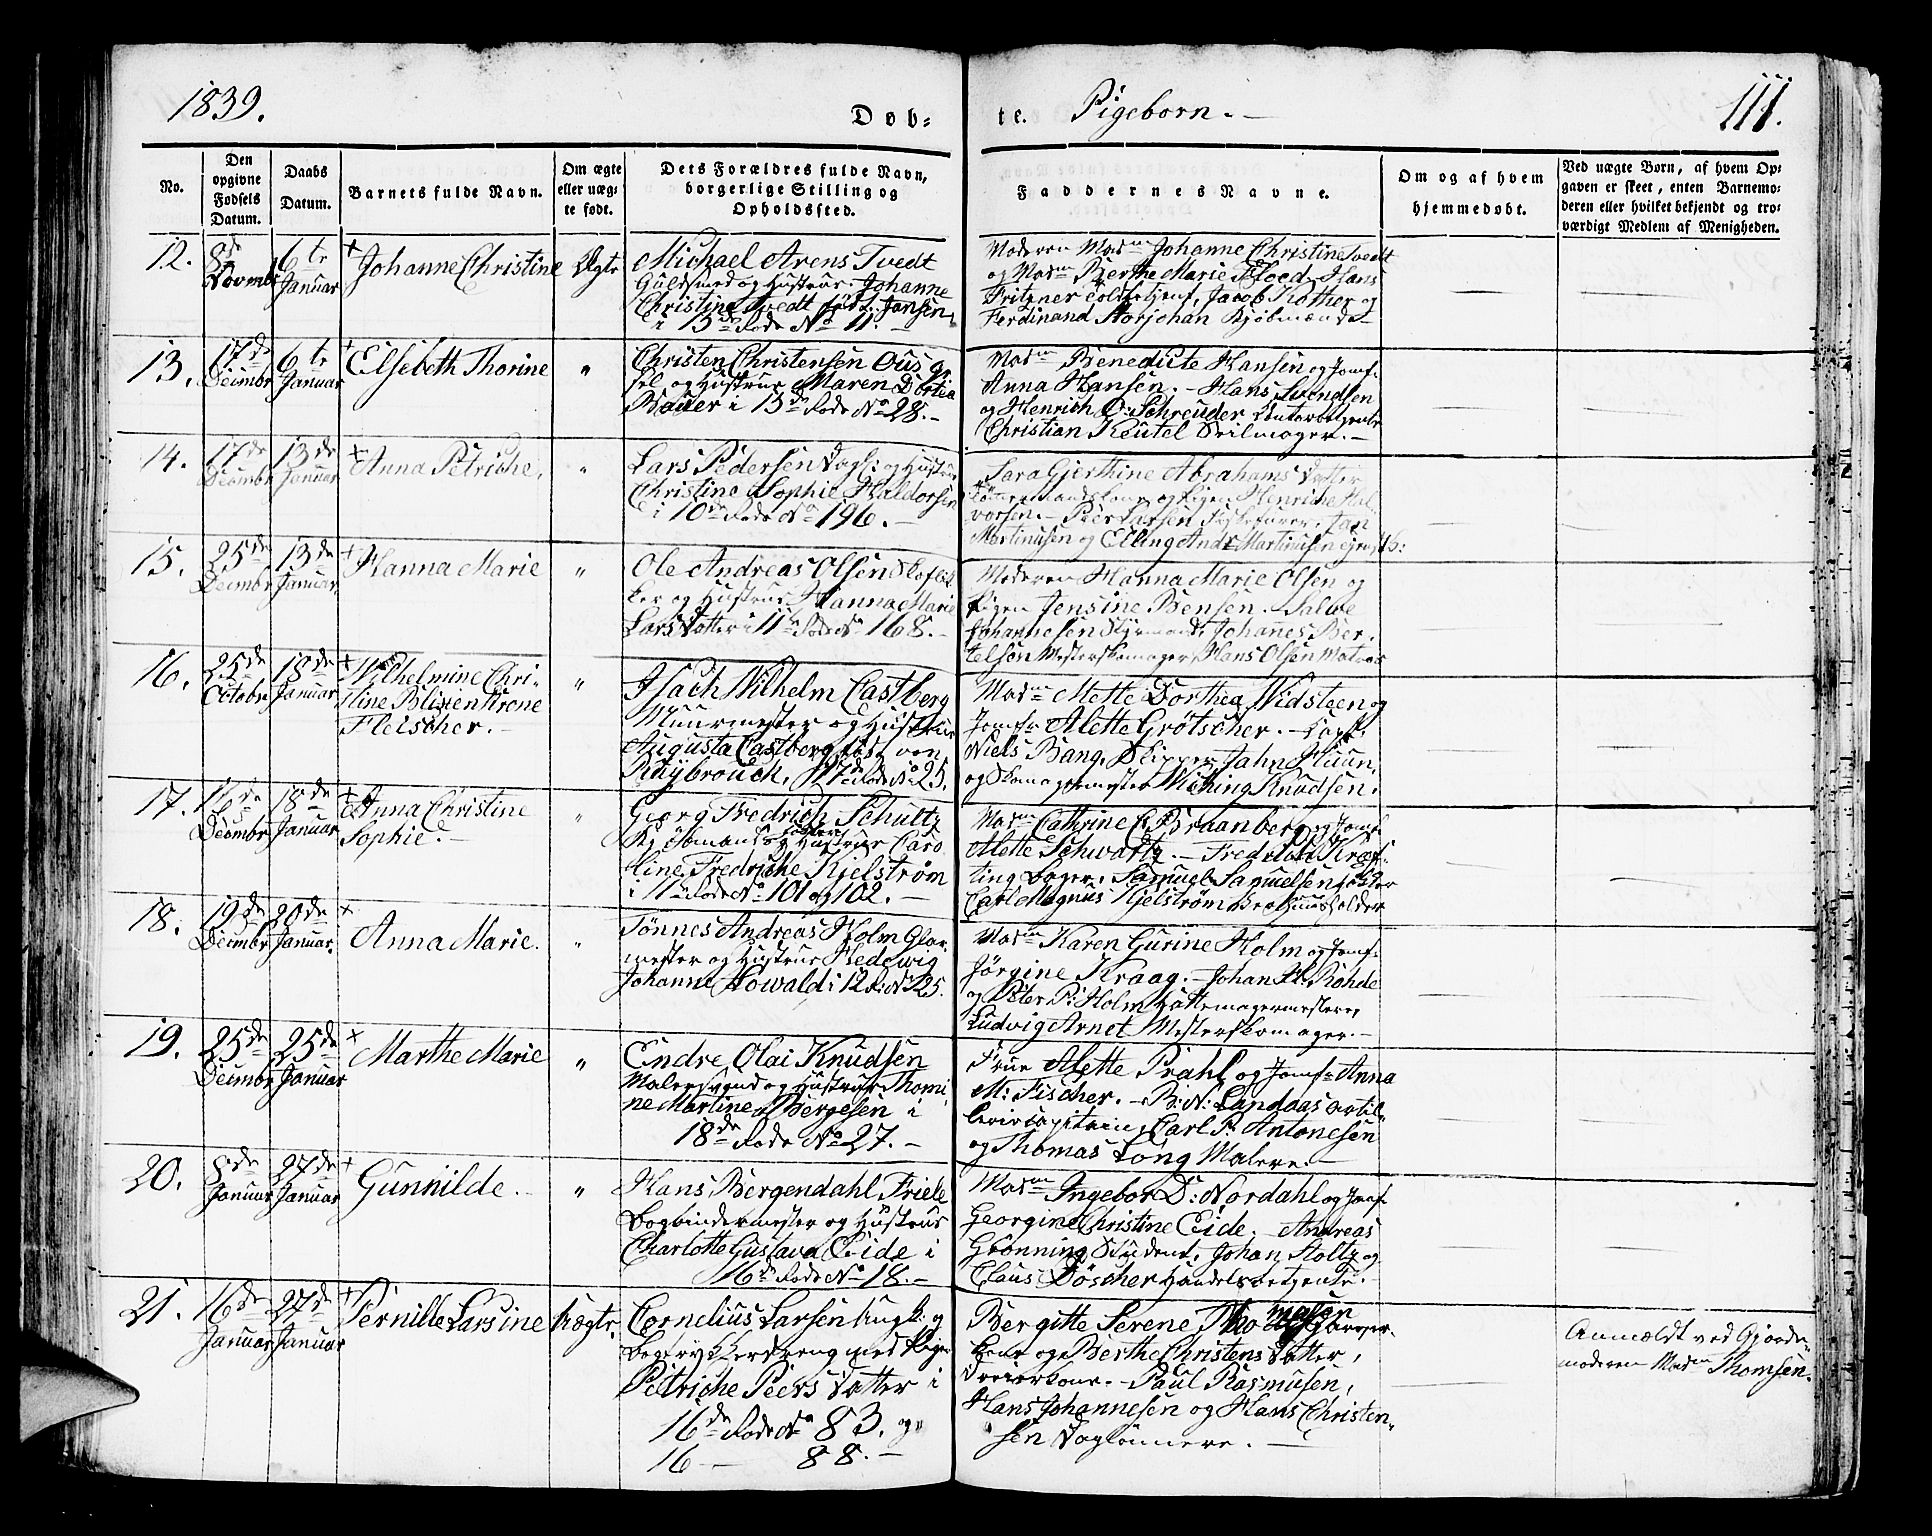 1839.
Døb-
te. Pigebørn.
111.
No.
Den opgivne Fødsels Datum.
Daabs Datum.
Barnets fulde Navn.
Om ægte eller uægte født.
Dets Forældres fulde Navn, borgerlige Stilling og Opholdssted.
Faddernes Navne.
Om og af hvem hjemmedøbt.
Ved uægte Børn, af hvem Opgaven er skeet, enten Barnemoderen eller hvilket bekjendt og troværdigt Medlem af Menigheden.
12. 8de Novmbr 6te Januar Johanne Christine Ægte
Michael Arens Tvedt
Guldsmed og Hustrue Johanne
Christine Tvedt født Jansen,
i 13de Rode No 11.
Moderen Madme Johanne Christine Tvedt
og Madme Berthe Marie Floed. Hans
Fritzner Toldbetjent, Jacob Kother og
Ferdinand Storjohan Kjøbmænd
13. 17de Decmbr 6te Januar Elsebeth Thorine "
Christen Christensen Ous
og Hustrue Maren Dortia
Bauer i 13de Rode No 28.
Madme Benedicte Hansen og Jomf:
Anna Hansen. Hans Svendsen
og Henrich O: Schreuder
Christian Keutel Seilmager.
14. 17de Decmbr 13de Januar Anna Petriche. "
Lars Pedersen Dagl: og Hustrue
Christine Sophie Haldorsen
i 10de Rode No 196.
Sara Gjerthine Abrahams Datter
og Pigen Henriche Hal-
vorsen. Peer Larsen
Martinusen og Elling Andr: Martinusen
15. 25de Decmbr 13de Januar Hanna Marie "
Ole Andreas Olsen
og Hustrue Hanna Marie
Lars Datter i 11te Rode No 168.
Moderen Hanna Marie Olsen og
Pigen Jensine Bensen. Salve
Johannesen Styrmand, Johannes Ber-
telsen Mesterskomager, Hans Olsen Matros
16. 25de Octobr 18de Januar Wilhelmine Chri-
stine Blixen Krone
Fleischer. "
Isach Wilhelm Castberg
Muurmester og Hustrue
Augusta Castberg født von
Ruybrouck, 17de Rode No 25.
Madme Mette Dorthea Widsteen og
Jomfr Alette Grøtscher. Capt:
Niels Bang, Skipper Jahn Huun,
og Skomagermester Wiching Knudsen.
17. 16de Decmbr 18de Januar Anna Christine
Sophie. "
Georg Fredrich Schultz
Kjøbmand og Hustrue Caro
line Fredriche Kjelstrøm
i 11te Rode No 101 og 102.
Madme Cathrine C. Braanberg og Jomf
Alette Schwartz. Fredrich Kræf-
ting Bager, Samuel Samuelsen
Carl Magnus Kjelstrøm
18. 19de Decmbr 20de Januar Anna Marie. "
Tønnes Andreas Holm Glar-
mester og Hustrue Hedewig
Johanne Howald i 12 R: No 125.
Madme Karen Gurine Holm og Jomf:
Jørgine Kraag. Johan H. Rohde
og Peter P: Holm Hattemagermestere,
Ludvig Arnet Mesterskomager.
19. 25de Decmbr 25de Januar Marthe Marie "
Endre Olai Knudsen
Malersvend og Hustrue Thomi
ne Martine Bergesen i
18de Rode No 27.
Frue Alette Prahl og Jomfr Anna
M: Fischer. B: N: Landaas Artil-
lericapitain, Carl P. Antonesen
og Thomas Long Malere.
20. 8de Januar 27de Januar Gunnilde. "
Hans Bergendahl Friele
Bogbindermester og Hustrue
Charlotte Gustava Eide i
16de Rode No 18.
Madme Ingebor D: Nordahl og Jomf
Georgine Christine Eide. Andreas
Grønning Student, Johan Stoltz og
Claus Döscher Handelsbetjente.
21. 16de Januar 27de Januar Pernille Larsine Uægte.
Cornelius Larsen Ungk: og
Bogtrykkerdreng med Pigen
Petriche Peers Datter i
16de Rode No 83. og
16 — 88.
Bergitte Serene Thomasen
Kone og Berthe Christens Datter,
Paul Rasmusen,
Hans Johannesen og Hans Christen-
sen Daglønnere.
Anmældt ved Gjorde-
moderen Madme Thomsen.